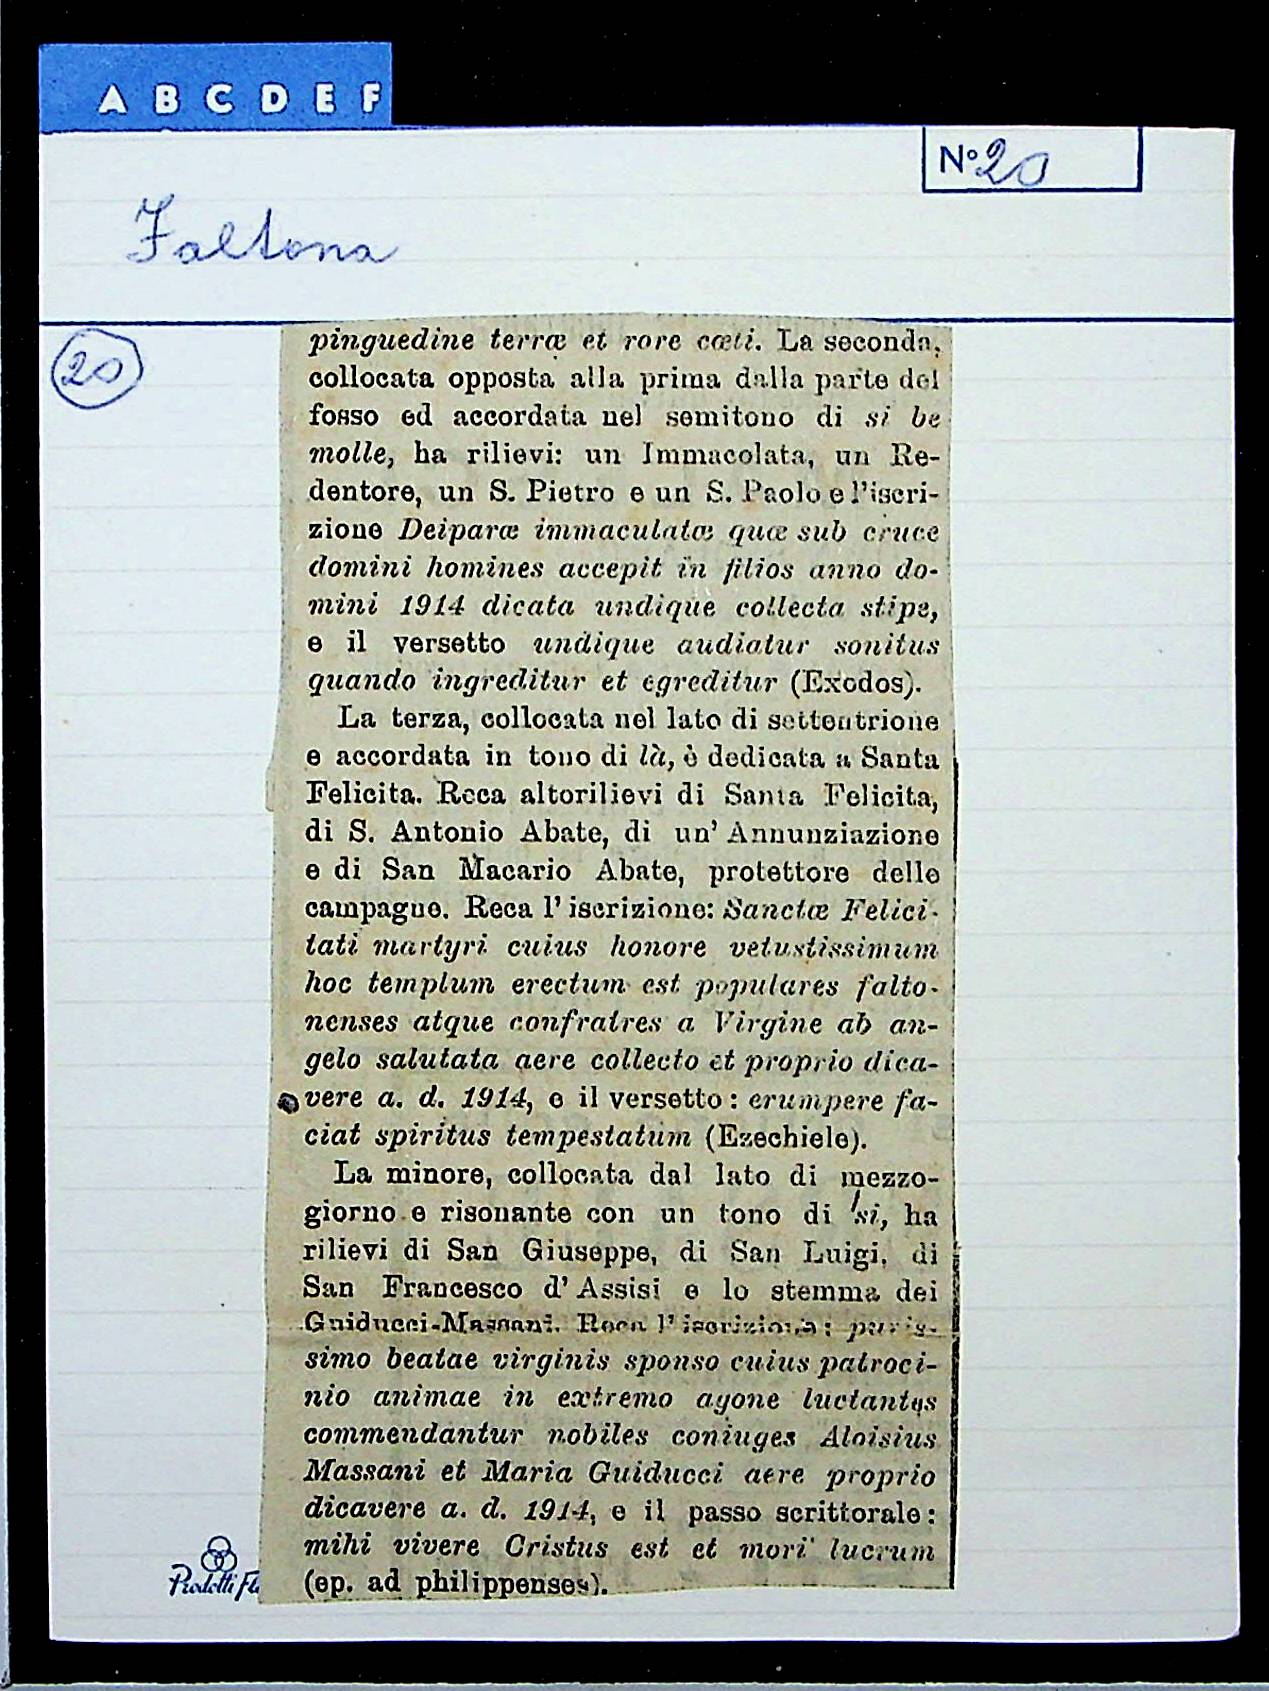 A B C D E F
Nº 20
Faltona
20
pinguedine terræ et rore cœli. La seconda,
collocata opposta alla prima dalla parte del
fosso ed accordata nel semitono di si be
molle, ha rilievi: un Immacolata, un Re-
dentore, un S. Pietro e un S. Paolo e l'iscri-
zione Deiparæ immaculatæ quæ sub cruce
domini homines accepit in filios anno do-
mini 1914 dicata undique collecta stipe,
e il versetto undique audiatur sonitus
quando ingreditur et egreditur (Exodos).
La terza, collocata nel lato di settentrione
e accordata in tono di là, è dedicata a Santa
Felicita. Reca altorilievi di Santa Felicita,
di S. Antonio Abate, di un' Annunziazione
e di San Macario Abate, protettore delle
campagne. Reca l' iscrizione: Sanctæ Felici-
tati martyri cuius honore vetustissimum
hoc templum erectum est populares falto-
nenses atque confratres a Virgine ab an-
gelo salutata aere collecto et proprio dica-
vere a. d. 1914, e il versetto: erumpere fa-
ciat spiritus tempestatum (Ezechiele).
La minore, collocata dal lato di mezzo-
giorno e risonante con un tono di si, ha
rilievi di San Giuseppe, di San Luigi, di
San Francesco d' Assisi e lo stemma dei
Guiducci-Massani. Reca l' iscrizione: puris-
simo beatae virginis sponso cuius patroci-
nio animae in extremo agone luctantes
commendantur nobiles coniuges Aloisius
Massani et Maria Guiducci aere proprio
dicavere a. d. 1914, e il passo scritturale:
mihi vivere Cristus est et mori lucrum
(ep. ad philippenses).
Prodotti